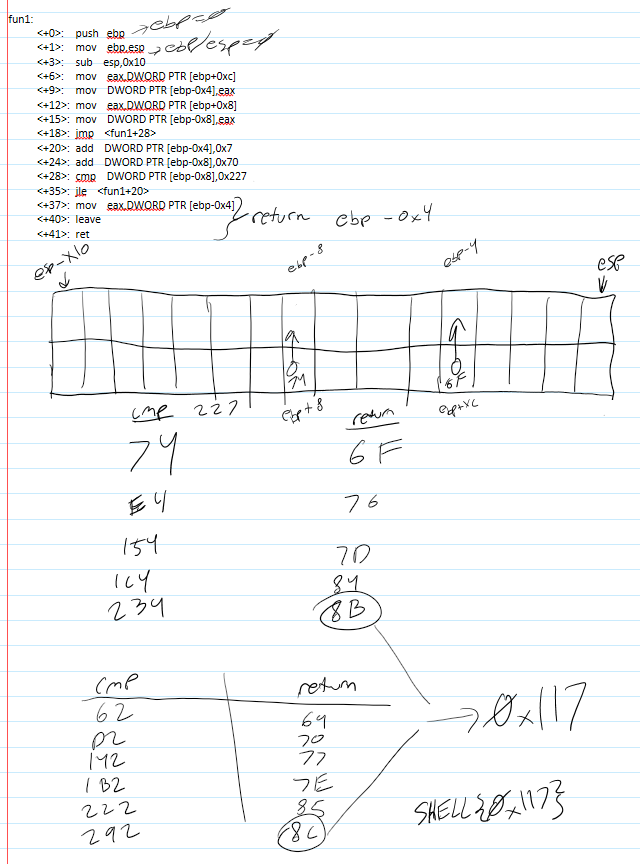 fun1:
<+0>: push ebp → ebp=0
<+1>: mov ebp,esp → ebp/esp=0
<+3>: sub esp,0x10
<+6>: mov eax,DWORD PTR [ebp+0xc]
<+9>: mov DWORD PTR [ebp-0x4],eax
<+12>: mov eax,DWORD PTR [ebp+0x8]
<+15>: mov DWORD PTR [ebp-0x8],eax
<+18>: jmp <fun1+28>
<+20>: add DWORD PTR [ebp-0x4],0x7
<+24>: add DWORD PTR [ebp-0x8],0x70
<+28>: cmp DWORD PTR [ebp-0x8],0x227
<+35>: jle <fun1+20>
<+37>: mov eax,DWORD PTR [ebp-0x4]
<+40>: leave
<+41>: ret
return ebp - 0x4
esp-x10 ebp-8 ebp-4 esp
0 0
74 6F
ebp+8 ebp+xc
cmp 227 return
74 6F
E4 76
154 7D
1C4 84
234 8B
cmp return
62 69
D2 70
142 77
1B2 7E
222 85
292 8C
→ 0x117
SHELL{0x117}